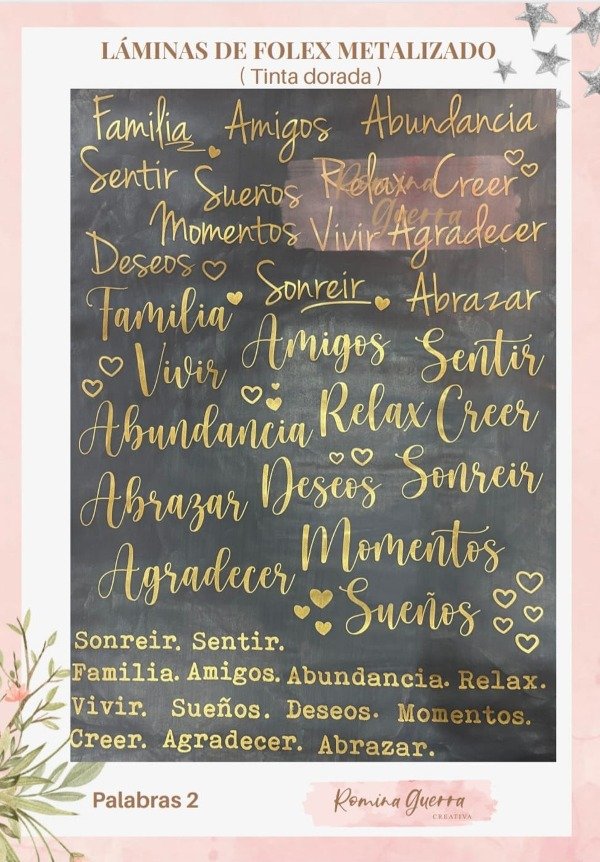 LÁMINAS DE FOLEX METALIZADO
( Tinta dorada )
Familia Amigos Abundancia
Sentir Sueños Relax Creer
Romina
Guerra
Momentos Vivir Agradecer
Deseos Sonreir Abrazar
Familia Amigos Sentir
Vivir
Abundancia Relax Creer
Abrazar Deseos Sonreir
Agradecer Momentos
Sueños
Sonreir. Sentir.
Familia. Amigos. Abundancia. Relax.
Vivir. Sueños. Deseos. Momentos.
Creer. Agradecer. Abrazar.
Palabras 2
Romina Guerra
CREATIVA